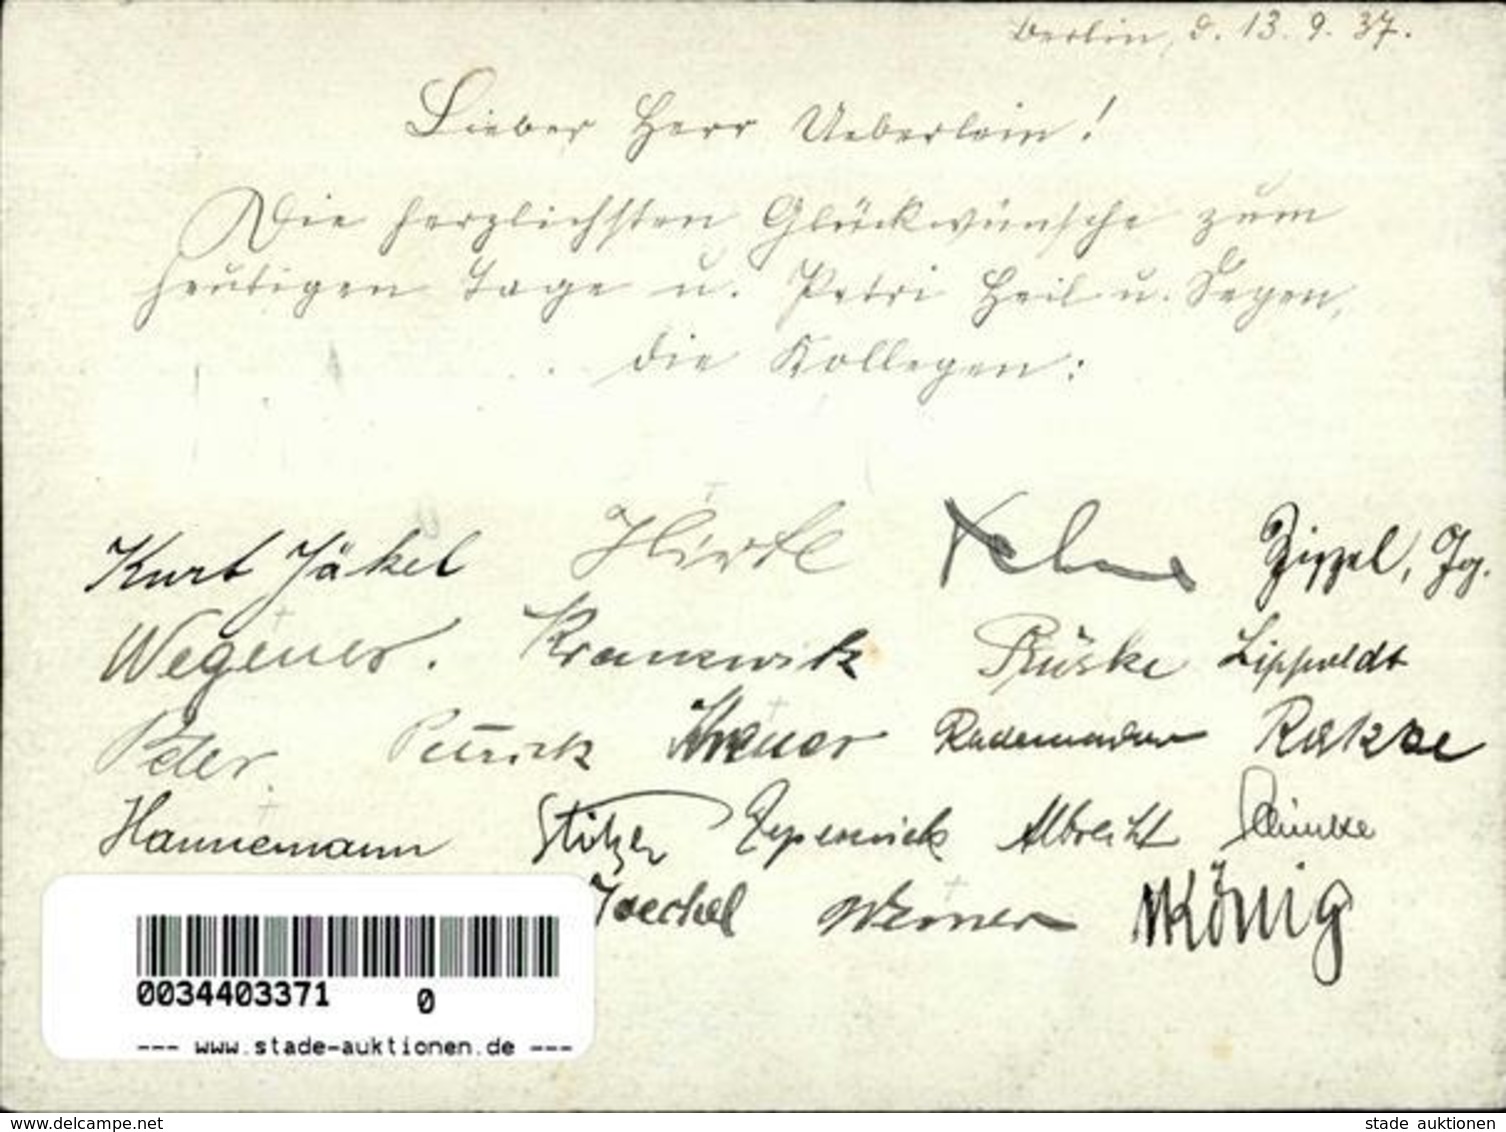 Berlin, d. 13. 9. 37.
Lieber Herr Ueberlein!
Die herzlichsten Glückwünsche zum
heutigen Tage u. Petri Heil u. Segen,
die Kollegen:
Kurt Jäkel Hirte Zippel, Jg.
Wegener. Krannwitz Prüske Lippoldt
Peter Petrick Rademacher
Hannemann Stitzer Albrecht
Jaeckel Werner König
0034403371 0
--- www.stade-auktionen.de ---
www.delcampe.net stade auktionen